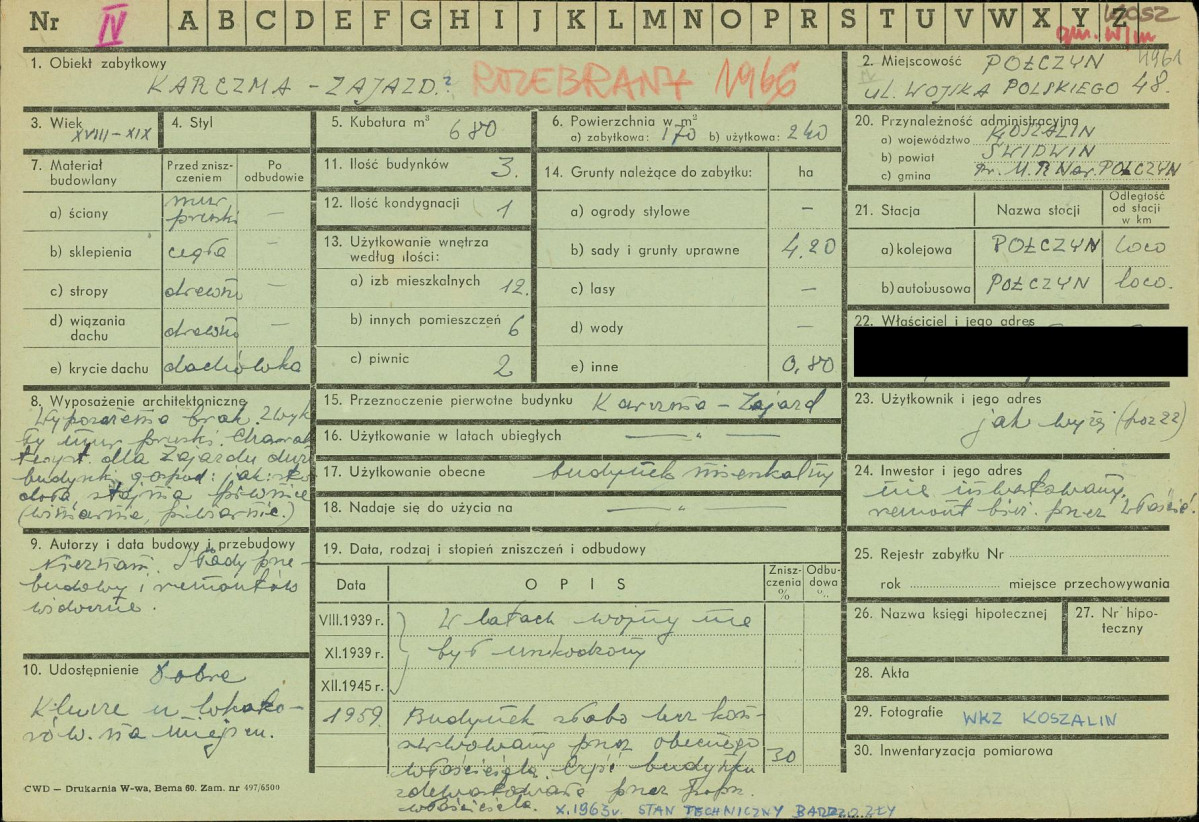 Nr IV A B C D E F G H I J K L M N O P R S T U V W X Y Z KOSZ
gm. w/m
1. Obiekt zabytkowy
KARCZMA – ZAJAZD? ROZEBRANY 1966
2. Miejscowość POŁCZYN 1961
UL. WOJSKA POLSKIEGO 48.
3. Wiek XVIII–XIX
4. Styl
5. Kubatura m³ 680
6. Powierzchnia w m²
a) zabytkowa: 170 b) użytkowa: 240
20. Przynależność administracyjna
a) województwo KOSZALIN
b) powiat ŚWIDWIN
c) gmina Pr. M.R Nar. POŁCZYN
7. Materiał budowlany
Przed zniszczeniem
Po odbudowie
a) ściany mur pruski –
b) sklepienia cegła –
c) stropy drewno –
d) wiązania dachu drewno –
e) krycie dachu dachówka
11. Ilość budynków 3.
12. Ilość kondygnacji 1
13. Użytkowanie wnętrza
według ilości:
a) izb mieszkalnych 12.
b) innych pomieszczeń 6
c) piwnic 2
14. Grunty należące do zabytku: ha
a) ogrody stylowe –
b) sady i grunty uprawne 4.20
c) lasy –
d) wody –
e) inne 0,80
21. Stacja Nazwa stacji Odległość od stacji w km
a) kolejowa POŁCZYN loco
b) autobusowa POŁCZYN loco.
22. Właściciel i jego adres
8. Wyposażenie architektoniczne
Wyposażenia brak. Zwyk
ły mur pruski. Charak
teryst. dla Zajazdu duże
budynki gospod: jak: sto
doła, stajnia piwnice
(winiarnie, piwiarnie.)
15. Przeznaczenie pierwotne budynku Karczma – Zajazd
16. Użytkowanie w latach ubiegłych — " —
17. Użytkowanie obecne budynek mieszkalny
18. Nadaje się do użycia na — " —
23. Użytkownik i jego adres
jak wyżej (poz 22)
24. Inwestor i jego adres
nie inwestowany,
remont bież. przez właścic.
9. Autorzy i data budowy i przebudowy
Nieznani. Ślady prze-
budowy i remontów
widoczne.
19. Data, rodzaj i stopień zniszczeń i odbudowy
Data OPIS Zniszczenia % Odbudowa %
VIII.1939 r. W latach wojny nie
XI.1939 r. był uszkodzony
XII.1945 r.
1959. Budynek słabo bez kon-
serwowany przez obecnego 30
właściciela. Część budynku
zdewastowana przez poprz.
właściciela.
X.1963r. STAN TECHNICZNY BARDZO ZŁY
25. Rejestr zabytku Nr
rok miejsce przechowywania
26. Nazwa księgi hipotecznej
27. Nr hipoteczny
28. Akta
10. Udostępnienie Dobre
Klucze u lokato-
rów. na miejscu.
29. Fotografie WKZ KOSZALIN
30. Inwentaryzacja pomiarowa
CWD — Drukarnia W-wa, Bema 60. Zam. nr 497/6500